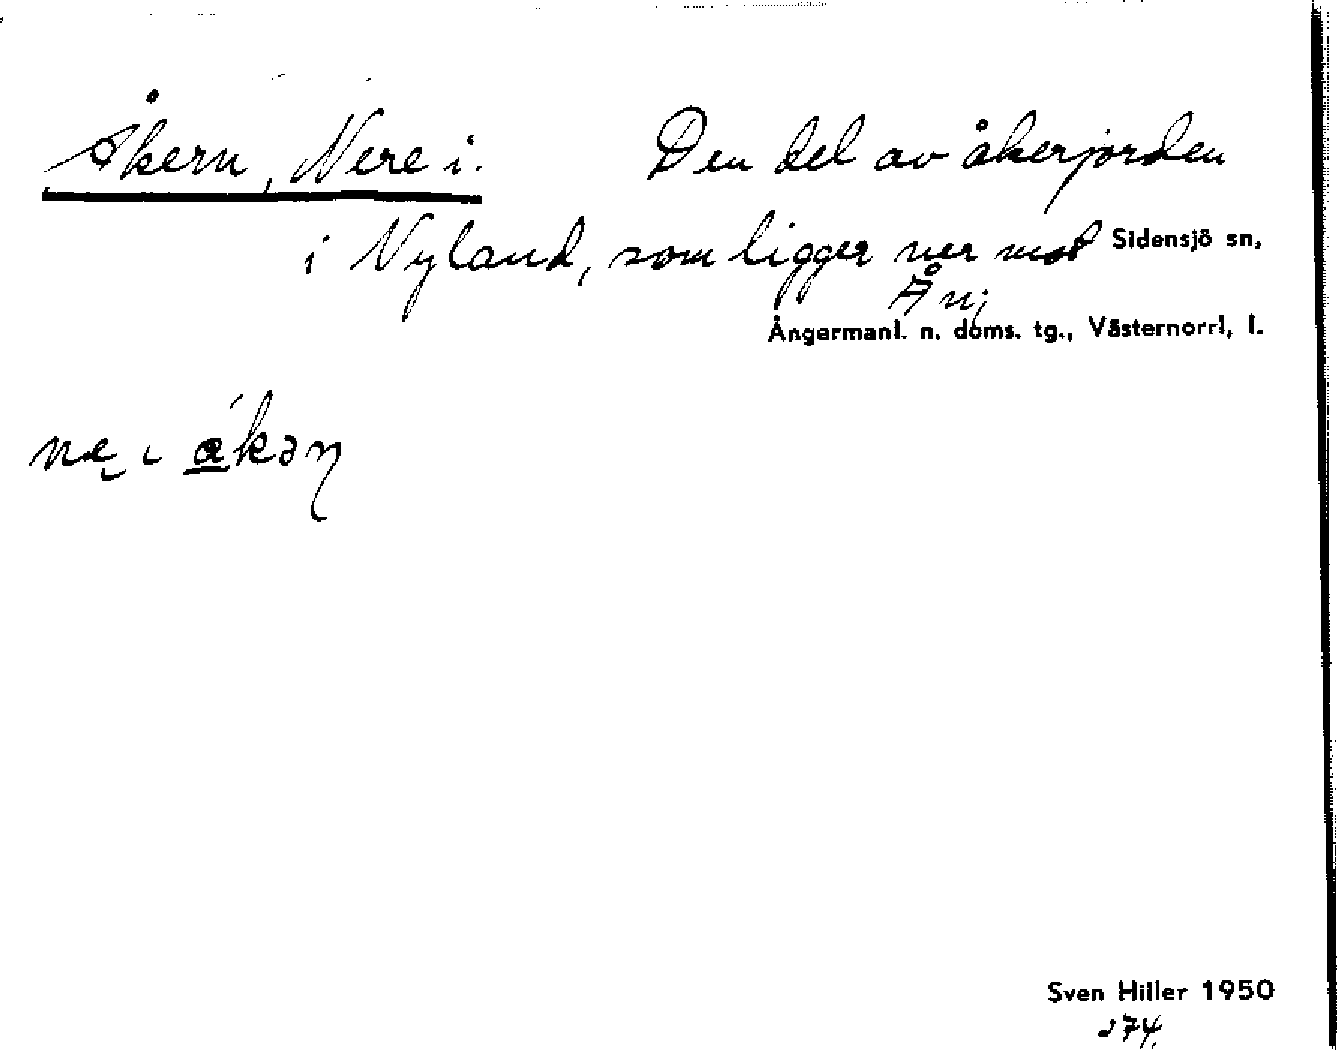 Åkern, Nere i. Den del av åkerjorden
i Nyland, som ligger ner mot Sidensjö sn,
Ån;
Ångermanl. n. doms. tg., Västernorrl, l.
i
Sven Hiller 1950
274.